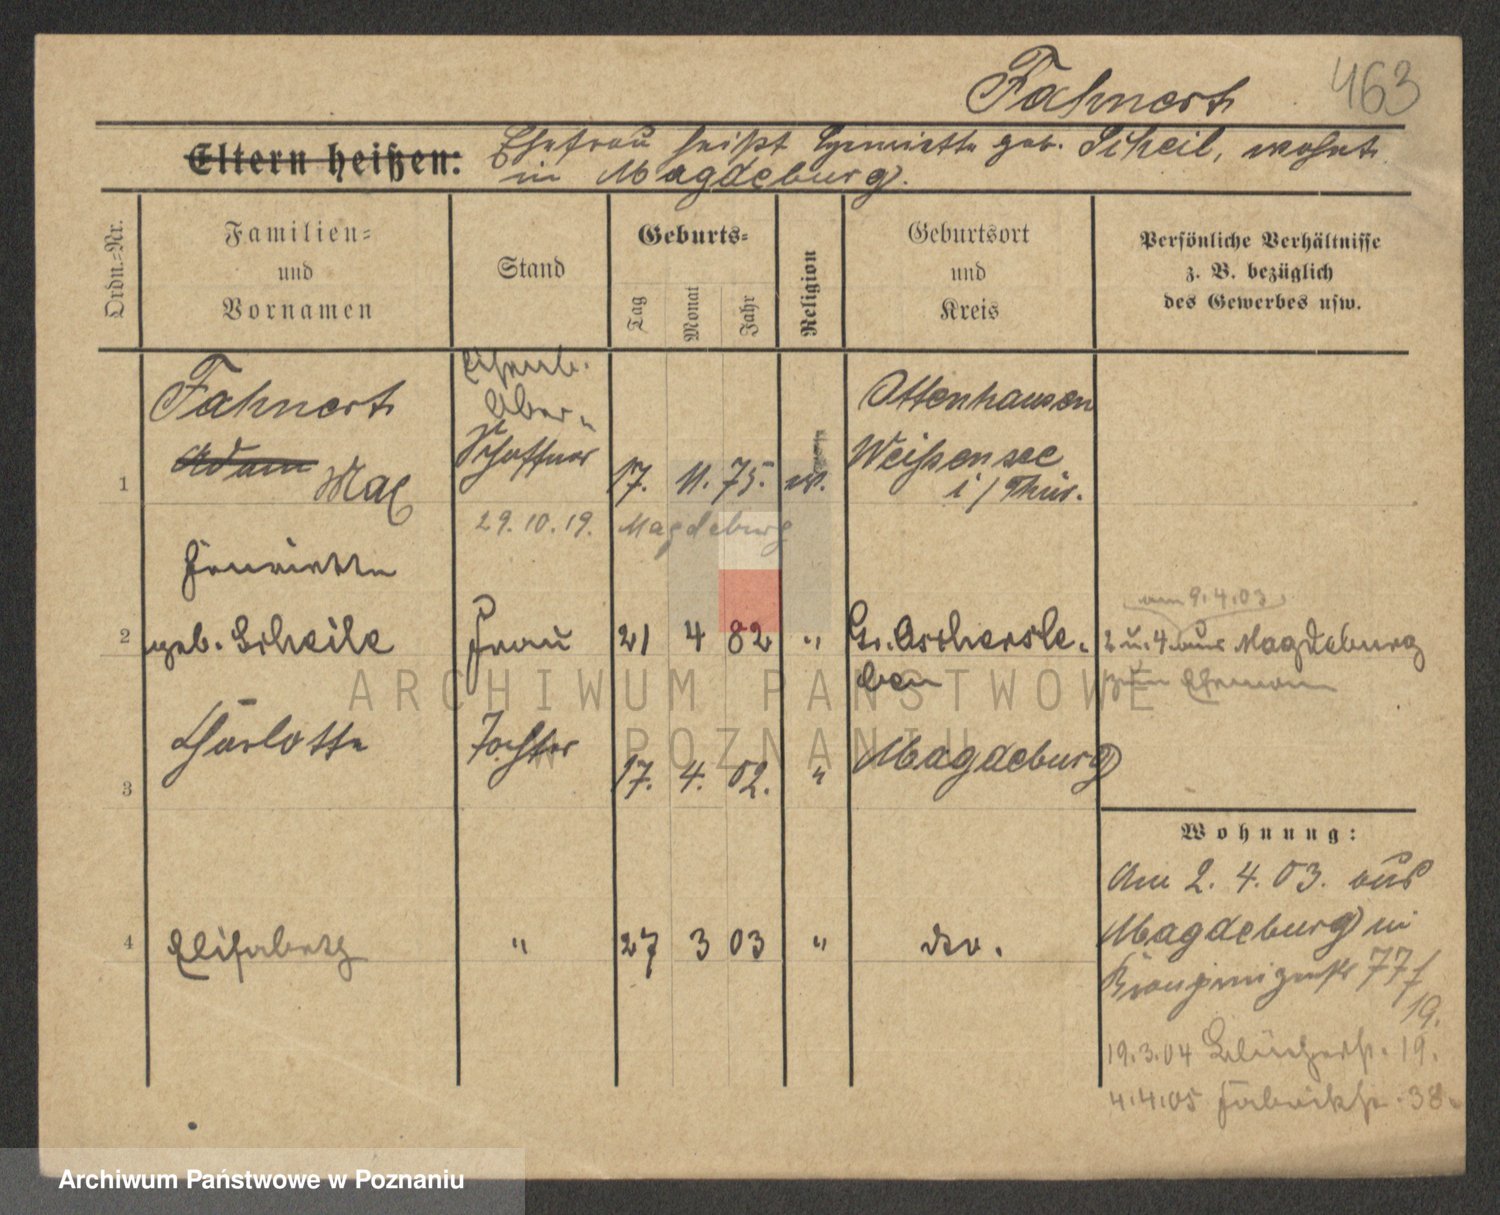 463
Fahnert
Eltern heißen: Ehefrau heißt Henriette geb. Scheil, wohnt
in Magdeburg.
Ordn.-Nr.
Familien-
und
Vornamen
Stand
Geburts-
Tag
Monat
Jahr
Religion
Geburtsort
und
Kreis
Persönliche Verhältnisse
z. B. bezüglich
des Gewerbes usw.
1
Fahnert
Adam Max
Eisenb.
Ober-
Schaffner
17. 11. 75. ev.
Ottenhausen
Weißensee
i/Thür.
29.10.19. Magdeburg
2
Henriette
geb. Scheile
Frau
21 4 82 "
Gr. Aschersle-
ben
am 9.4.03
2 u. 4 aus Magdeburg
zum Ehemann
3
Charlotte
Tochter
17. 4. 02. "
Magdeburg
4
Elisabeth
"
27 3 03 "
do.
Wohnung:
Am 2. 4. 03. aus
Magdeburg in
Kronprinzenstr 77/
19.
19.3.04 Blücherstr. 19.
4.4.05 Fabrikstr. 38.
ARCHIWUM PAŃSTWOWE
W POZNANIU
Archiwum Państwowe w Poznaniu